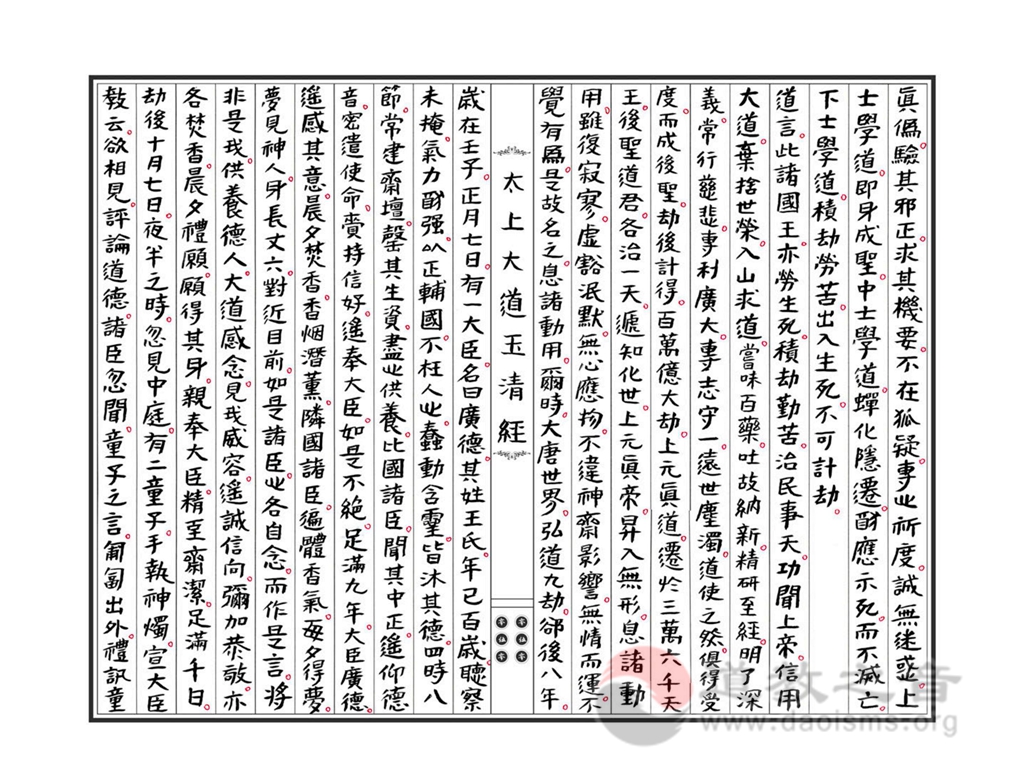 眞僞驗其邪正求其機要不在狐疑專心祈度誠無迷惑上
士學道即身成聖中士學道蟬化隱遷酬應示死而不滅亡
下士學道積劫勞苦出入生死不可計劫
道言此諸國王亦勞生死積劫勤苦治民事天功聞上帝信用
大道棄捨世榮入山求道嘗味百藥吐故納新精研至經明了深
義常行慈悲專利廣大專志守一遠世塵濁道使之然俱得受
度而成後聖劫後計得百萬億大劫上元眞道遷於三萬六千天
王後聖道君各治一天遞知化世上元眞帝昇入無形息諸動
用雖復寂寥虛豁泯默無心應物不違神齋影響無情而運不
覺有爲是故名之息諸動用爾時大唐世界弘道九劫郤後八年
太上大道玉清經
歲在壬子正月七日有一大臣名曰廣德其姓王氏年已百歲聽察
未掩氣力酬强以正輔國不枉人心蠢動含靈皆沐其德四時八
節常建齋壇罄其生資盡心供養比國諸臣聞其中正遥仰德
音密遣使命賫持信好遥奉大臣如是不絕足滿九年大臣廣德
遥感其意晨夕焚香香烟潛薰隣國諸臣遍體香氣每夕得夢
夢見神人身長丈六對近目前如是諸臣心各自念而作是言將
非是我供養德人大道感念見我威容遥誠信向彌加恭敬亦
各焚香晨夕禮願願得其身親奉大臣精至齋潔足滿千日
劫後十月七日夜半之時忽見中庭有二童子手執神燭宣大臣
敎云欲相見評論道德諸臣忽聞童子之言匍匐出外禮訊童
道教之音
www.daoisms.org